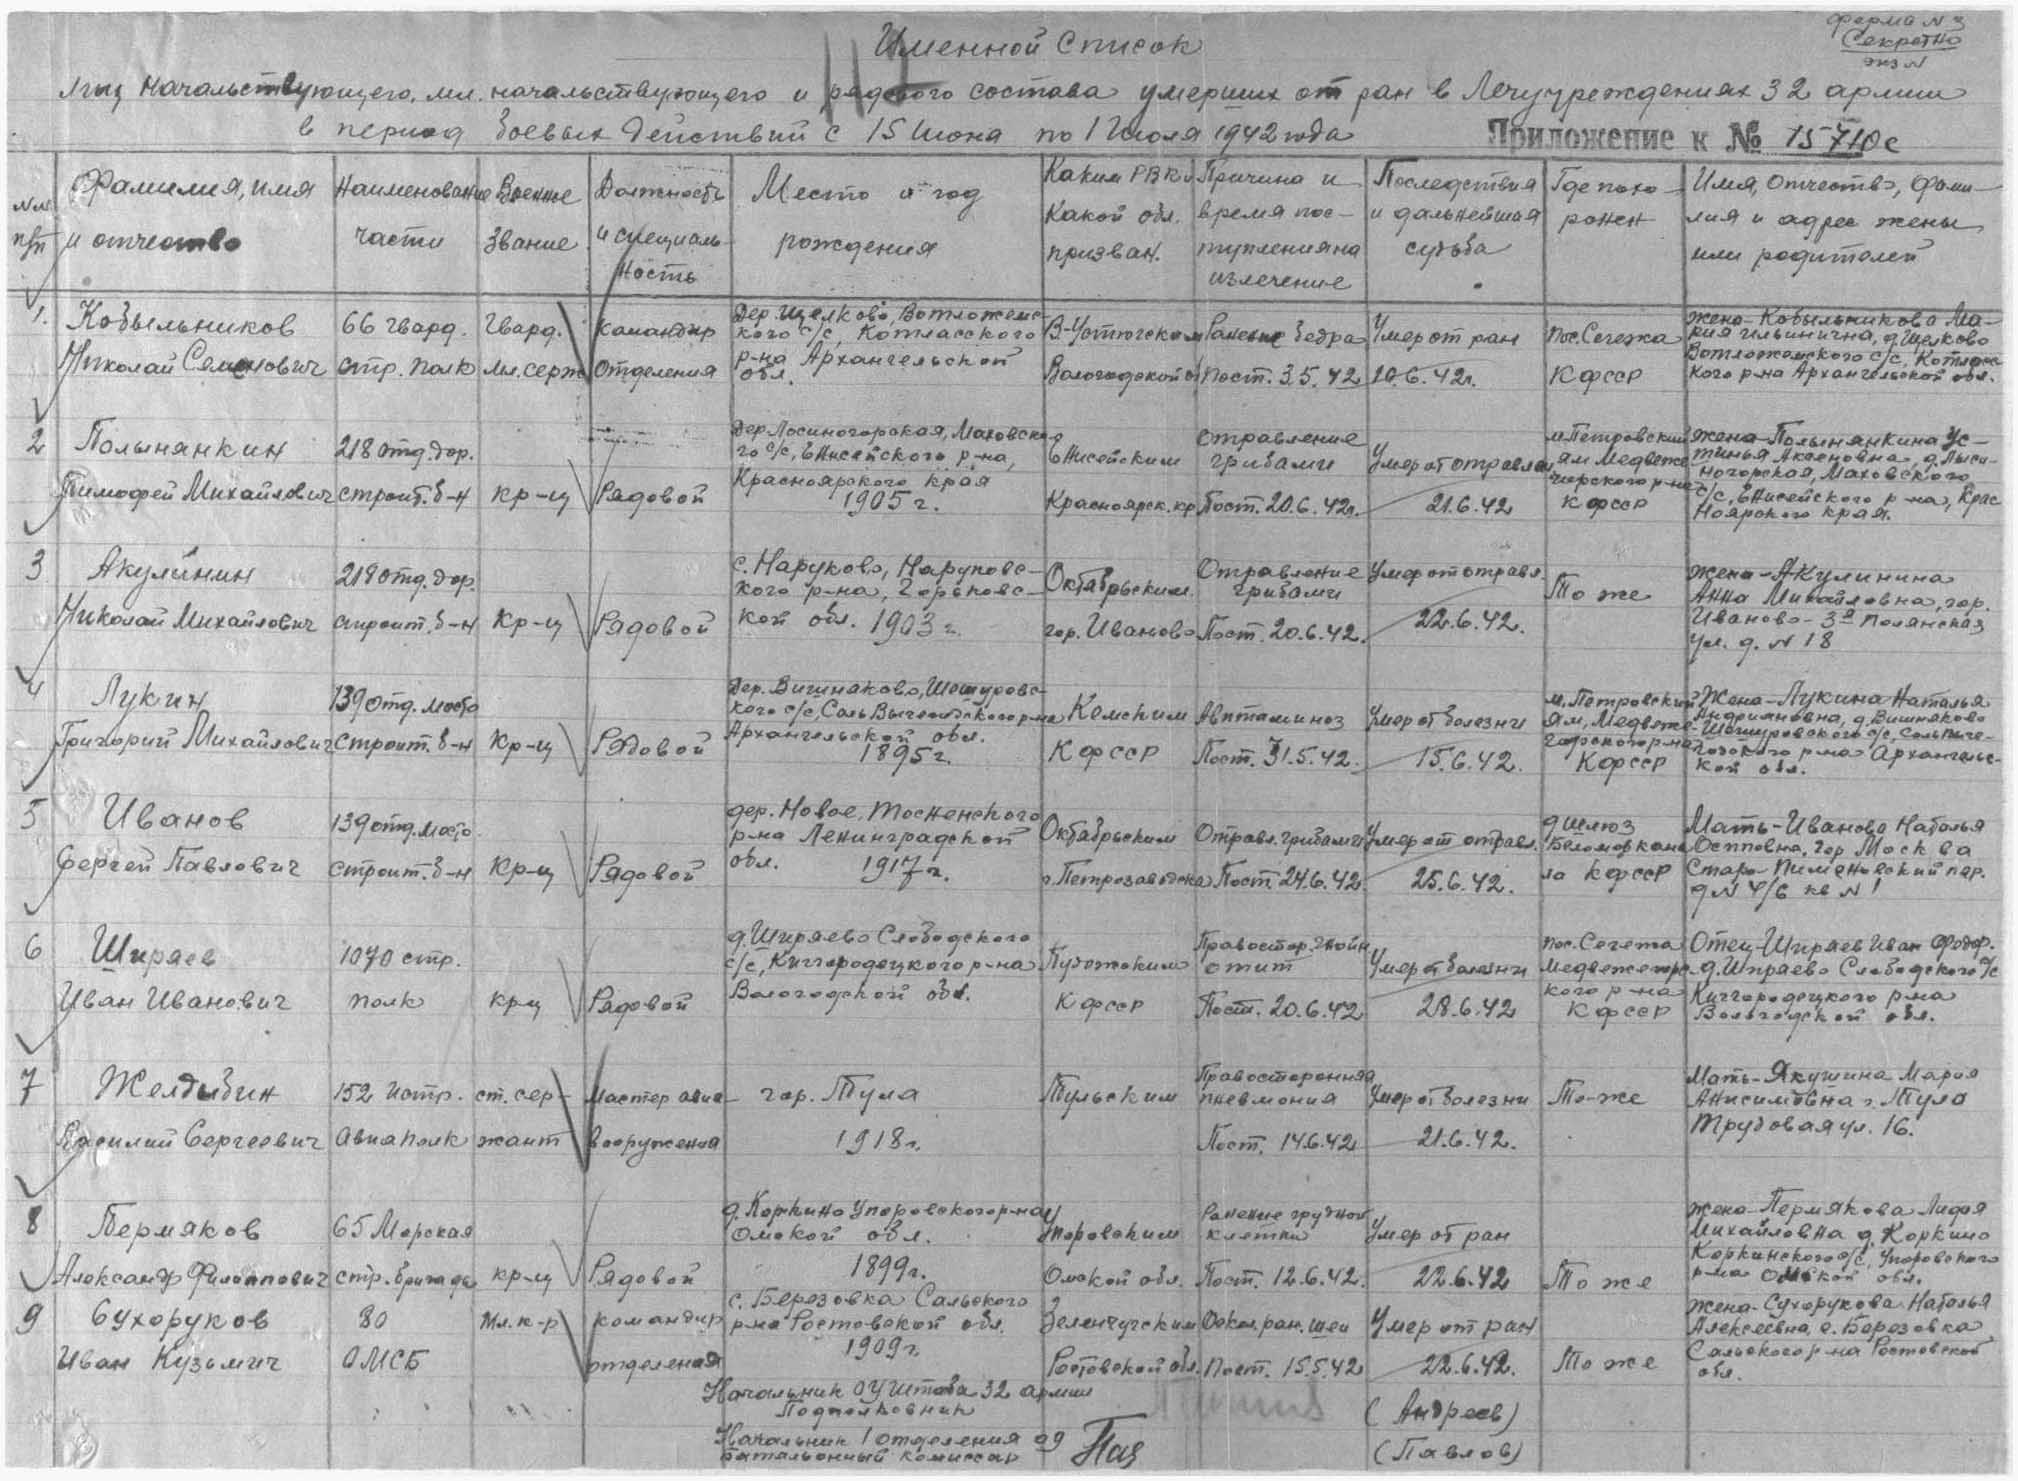 форма N 3
Секретно
экз N
Именной список
лиц начальствующего, мл. начальствующего и рядового состава умерших от ран в Лечучреждениях 32 армии
в период боевых действий с 15 Июня по 1 Июля 1942 года
Приложение к № 15710с
NN п/п
Фамилия, имя
и отчество
Наименование
части
Военное
звание
Должность
и специаль-
ность
Место и год
рождения
Каким РВК и
какой обл.
призван.
Причина и
время пос-
тупления на
излечение
Последствия
и дальнейшая
судьба
Где похо-
ронен
Имя, отчество, фами-
лия и адрес жены
или родителей
1.
Кобыльников
Николай Семенович
66 гвард.
стр. полк
Гвард.
мл. серж
командир
отделения
Дер. Щелково, Вотложемс-
кого с/с, Котласского
р-на Архангельской
обл.
В-Устюгским
Вологодской о
Ранение бедра
Пост. 3.5.42
Умер от ран
20.6.42г.
пос. Сегежа
КФССР
жена-Кобыльникова Ма-
рия Ильинична, д. Щелково
Вотложемского с/с, Котласс
кого р-на Архангельской обл.
2
Полынянкин
Тимофей Михайлович
218 отд. дор.
строит. б-н
кр-ц
Рядовой
Дер. Лосиногорская, Маховско-
го с/с, Енисейского р-на,
Красноярского края
1905 г.
Енисейским
Красноярск. кр
Отравление
грибами
Пост. 20.6.42г.
Умер от отравлен
21.6.42
м. Петровский
ям Медвеже
горского р-на
КФССР
жена-Полынянкина Ус-
тинья Аксеновна, д. Лыси-
ногорская, Маховского
с/с, Енисейского р-на, Крас
ноярского края.
3
Акулинин
Николай Михайлович
218 отд. дор.
строит. б-н
кр-ц
Рядовой
с. Наруково, Наруковс-
кого р-на, Горьковс-
кой обл. 1903 г.
Октябрьским
гор. Иваново
Отравление
грибами
Пост. 20.6.42.
Умер от отравл.
22.6.42.
То же
жена-Акулинина
Анна Михайловна, гор.
Иваново-3я Полянская
ул. д. N 18
4
Лукин
Григорий Михайлович
139 отд. мосто
строит. б-н
Кр-ц
Рядовой
Дер. Вишняково, Шошуровс-
кого с/с, Соль Вычегодского р-на
Архангельской обл.
1895 г.
Кемским
КФССР
Авитаминоз
Пост. 31.5.42.
Умер от болезни
15.6.42.
м. Петровский
ям, Медвеже-
горского р-на
КФССР
Жена-Лукина Наталья
Андриановна, д. Вишняково
Шошуровского с/с, Сольвыче-
годского р-на Архангельс-
кой обл.
5
Иванов
Сергей Павлович
139 отд. мосто
строит. б-н
Кр-ц
Рядовой
дер. Новое, Тосненского
р-на Ленинградской
обл. 1917 г.
Октябрьским
г. Петрозаводска
Отравл. грибами
Пост. 24.6.42
Умер от отравл.
25.6.42.
9 шлюз
Беломоркана
ла КФССР
Мать-Иванова Наталья
Осиповна, гор Москва
Старо-Пименовский пер.
д N 4/6 кв N 1
6
Ширяев
Иван Иванович
1070 стр.
полк
кр-ц
Рядовой
д. Ширяево Слободского
с/с, Кичгородецкого р-на
Вологодской обл.
Пудожским
КФССР
Правостор. гнойн
отит
Пост. 20.6.42
Умер от болезни
28.6.42
пос. Сегежа
Медвежегорс-
кого р-на
КФССР
Отец-Ширяев Иван Федор.
д. Ширяево Слободского с/с
Кичгородецкого р-на
Вологодской обл.
7
Желдыбин
Василий Сергеевич
152 истр.
авиаполк
ст. сер-
жант
Мастер авиа-
вооружения
гор. Тула
1918 г.
Тульским
Правосторонняя
пневмония
Пост. 14.6.42
Умер от болезни
21.6.42.
То-же
Мать-Якушина Мария
Анисимовна г. Тула
Трудовая ул. 16.
8
Пермяков
Александр Филиппович
65 Морская
стр. бригады
кр-ц
Рядовой
д. Коркино Упоровского р-на
Омской обл.
1899 г.
Упоровским
Омской обл.
Ранение грудной
клетки
Пост. 12.6.42.
Умер от ран
22.6.42
То же
жена-Пермякова Лидия
Михайловна д. Коркино
Коркинского с/с, Упоровского
р-на Омской обл.
9
Сухоруков
Иван Кузьмич
80
ОМСБ
Мл. к-р
командир
отделения
с. Березовка Сальского
р-на Ростовской обл.
1909 г.
Зеленчугским
Ростовской обл.
Оскол. ран. шеи
Пост. 15.5.42
Умер от ран
22.6.42.
То же
жена-Сухорукова Наталья
Алексеевна, с. Березовка
Сальского р-на Ростовской
обл.
Начальник ОУ Штаба 32 армии
Подполковник
(Андреев)
Начальник 1 отделения ОУ
батальонный комиссар
(Павлов)